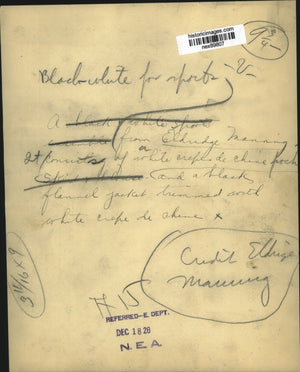 historicimages.com
nex89807
9 3/4 -
Black-white for sports -V-
A black & white sport
from Eldridge Manning
It consists of a white crepe de chine frock
and a black
flannel jacket trimmed with
white crepe de chine x
Credit Eldridge
Manning
H 15
REFERRED-E. DEPT.
DEC 18 28
N. E. A.